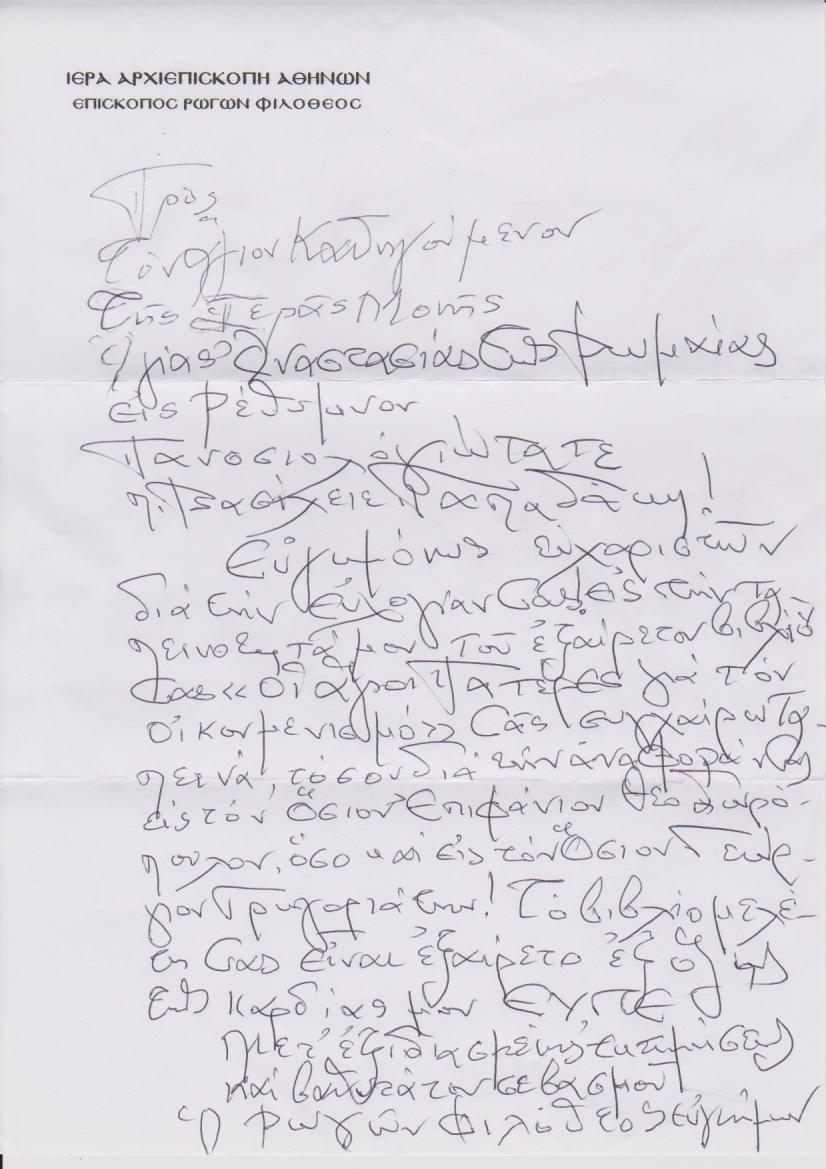 ΙΕΡΑ ΑΡΧΙΕΠΙΣΚΟΠΗ ΑΘΗΝΩΝ
ΕΠΙΣΚΟΠΟΣ ΡΩΓΩΝ ΦΙΛΟΘΕΟΣ
Πρὸς
τὸν Ἅγιον Καθηγούμενον
τῆς Ἱερᾶς Μονῆς
Ἁγίας Ἀναστασίας τῆς Ρωμαίας
εἰς Ρέθυμνον
Πανοσιολογιώτατε
π. Βασίλειε Παπαδάκη!
Εὐγνωμόνως εὐχαριστῶν
διὰ τὴν Εὐλογίαν Σας εἰς τὴν τα
πεινότητά μου τοῦ ἐξαίρετου βιβλίου
Σας «Οἱ ἅγιοι Πατέρες γιὰ τὸν
Οἰκουμενισμό» Σᾶς συγχαίρω τα-
πεινά, τόσον διὰ τὴν ἀναφορά Σας
εἰς τὸν Ὅσιον Ἐπιφάνιον Θεοδωρό-
πουλον, ὅσο καὶ εἰς τὸν Ὅσιον Γεώρ-
γιον Γρηγοριάτην! Τὸ βιβλίο μελέ-
της Σας εἶναι ἐξαίρετο ἐξ ὅλης
τῆς καρδίας μου ΕΥΓΕ
Μετ' ἐξιδιασμένης ἐκτιμήσεως
καὶ βαθυτάτου σεβασμοῦ
Ὁ Ρωγῶν Φιλόθεος εὐγνώμων